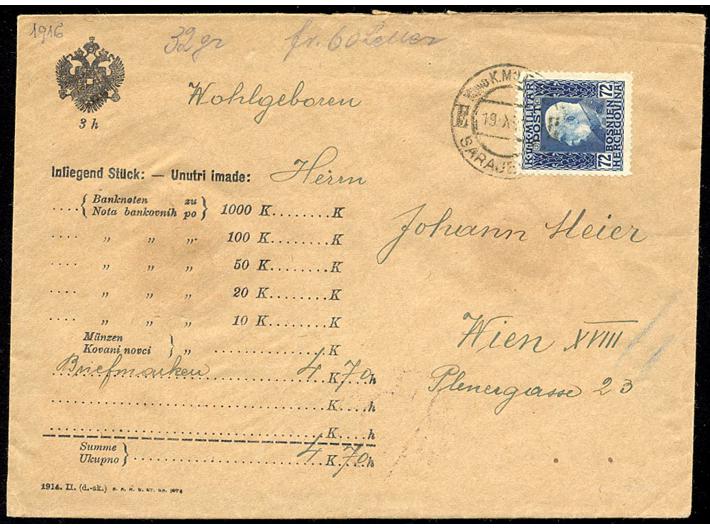 1916
32 gr fr. 60 Heller
3 h
Wohlgeboren
K.u.K. MILITÄR
POST
BOSNIEN
HERCEGOVINA
72 72
19. X.
SARAJE
Inliegend Stück: — Unutri imade: Herrn
.... { Banknoten zu
Nota bankovnih po } 1000 K........K
.... „ „ „ 100 K........K
.... „ „ „ 50 K........K
.... „ „ „ 20 K........K
.... „ „ „ 10 K........K
Münzen
Kovani novci } „ ..............K
Briefmarken 4 K 70 h
K....h
K....h
Summe
Ukupno } 4 K 70 h
Johann Meier
Wien XVIII
Plenergasse 23
1914. II. (d.-sk.)